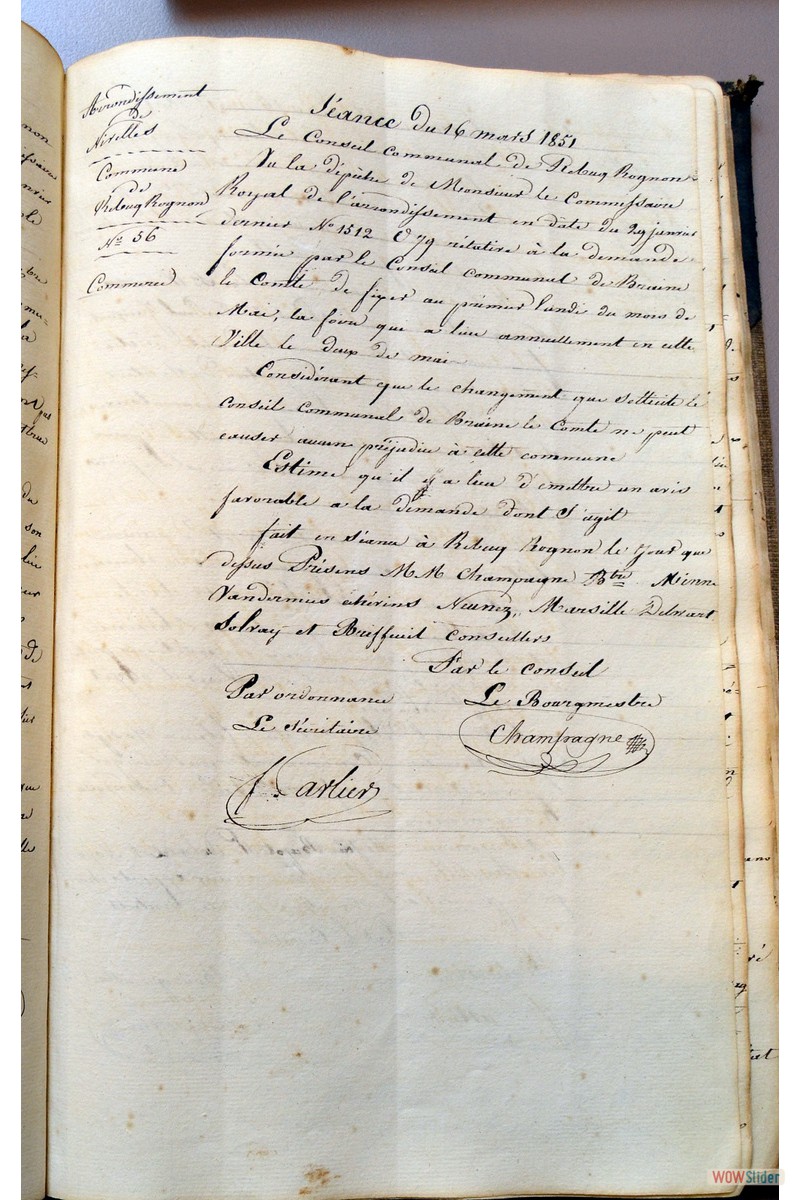 Arrondissement
de
Nivelles
Commune
de
Rebecq Rognon
N° 56
Commerce
Séance du 16 mars 1851
Le Conseil communal de Rebecq Rognon
Vu la dépêche de Monsieur le Commissaire
Royal de l'arrondissement en date du 29 janvier
dernier N° 1512 & 79 rélative à la demande
formée par le Conseil communal de Braine
le Comte, de fixer au prémier lundi du mois de
Mai, la foire que a lieu annuellement en cette
Ville le deux de mai
Considérant que le changement que sollicite le
conseil communal de Braine le Comte ne peut
causer aucun préjudice à cette commune
Estime qu'il y a lieu d'émettre un avis
favorable a la demande dont s'agit
fait en séance à Rebecq Rognon le jour que
dessus Présens M M Champagne, Bte Minne
Marsille Delwart
Solvay et Briffeuil conseillers
Par le conseil
Par ordonnance
Le Bourgmestre
Le Sécrétaire
Champagne
f. Carlier
WOWSlider